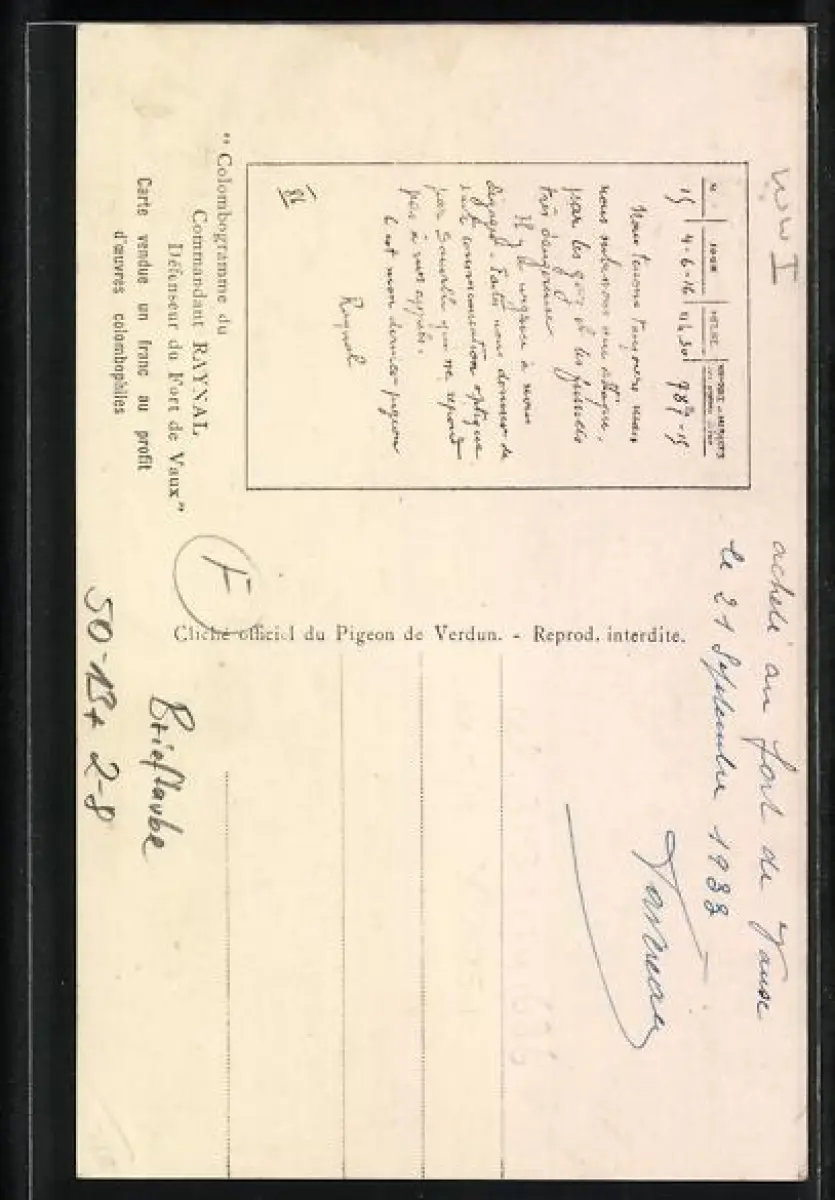 WWI
Nous tenons toujours mais
nous subissons une attaque,
par les gaz et les fumées
très dangereuse
Il y a urgence à nous
dégager - Faites nous donner de
suite communication optique
par Souville qui ne répond
pas à nos appels.
C'est mon dernier pigeon
Raynal
" Colombogramme du
Commandant RAYNAL
Défenseur du Fort de Vaux "
Carte vendue un franc au profit
d'œuvres colombophiles
Cliché officiel du Pigeon de Verdun. - Reprod. interdite.
F
acheté au fort de Vaux
le 21 Septembre 1933
Brieftaube
50-13+ 2-8